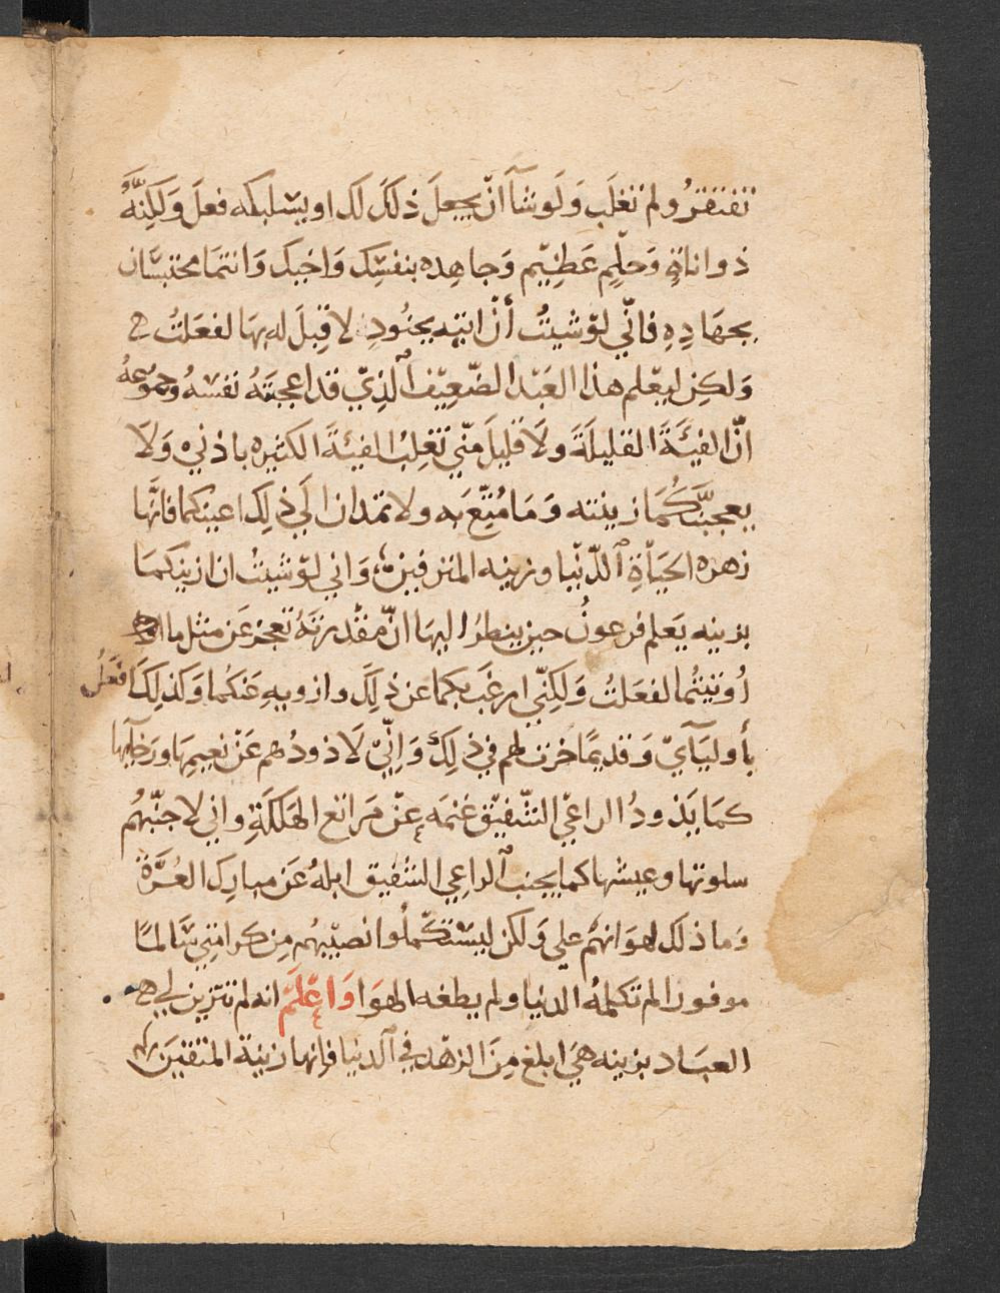 تفتقرُ ولم تغلَب وَلَوشآ انّ يجعلَ ذلكَ لك اويسلبكه فعلَ وَلَكِنَّهُ
ذواناةٍ وَحلِمٍ عَظِيّمٍ وَجاهِده بنفسِك وَاخيك وَانتمَا محتبسَان
بجهَادِهِ فانّي لوّشيتُ أنّ اتيه بجنُودٍ لا قِبلَ له بهَا لفعَلتُ
وَلكِن ليعّلم هذا العَبْد الضّعِيّف ٱلذِيّ قد اعجبَتهُ نفسهُ وجمُوعهُ
انّ الفيَّةَ القليلَةَ ولَا قليلَ منّي تغلِبُ الفيَّةَ الكثيره باذني وَلاَ
يعجبنَّكُمَا زينته وَمَا مُتِّعَ به ولا تمدان الَي ذلِك اعينكما فانّهَا
زهره الحَيَاةِ ٱلدّنّيا وزينه المترفين وَاني لوّشيتُ ان ازينكمَا
بزينه يَعلم فرعونُ حين ينظرُ اليهَا انّ مقّدرتَهُ تعجزعَن مثل ما
أُوتيتُما لفعَلتُ وَلَكِنّي ارغَب بكما عن ذلِكَ وازويهِ عَنكُما وَكذلِكَ افعَلُ
بأوليَآيّ وَقديمًا خرت لهم في ذلِكَ وَاِنّيّ لَاذودُهم عَنّ نعيمِهَا ورَخآيها
كمَا يَذودُ الراعّي الشّفيّق غنمَه عنّ مَراتع الهَلكَةِ واني لاجنّبهُم
سلوتها وعيشها كما يجنب ٱلراعِي الشفيق ابلهُ عَن مبارِك العُرَّةَ
وَما ذلك لهوَانهُم علي وَلكن ليسّتكّملُوا نصيّبهُم مِن كرامتي سَالمًا
موفورا لم تكلمهُ الدنيا ولم يطغه الهوَا وَاعّلَم انه لم تتزين لي
العبَاد بزينه هيَ ابلغ مِنَ الزهّد في ٱلدنيا فانها زينة المتقيَن